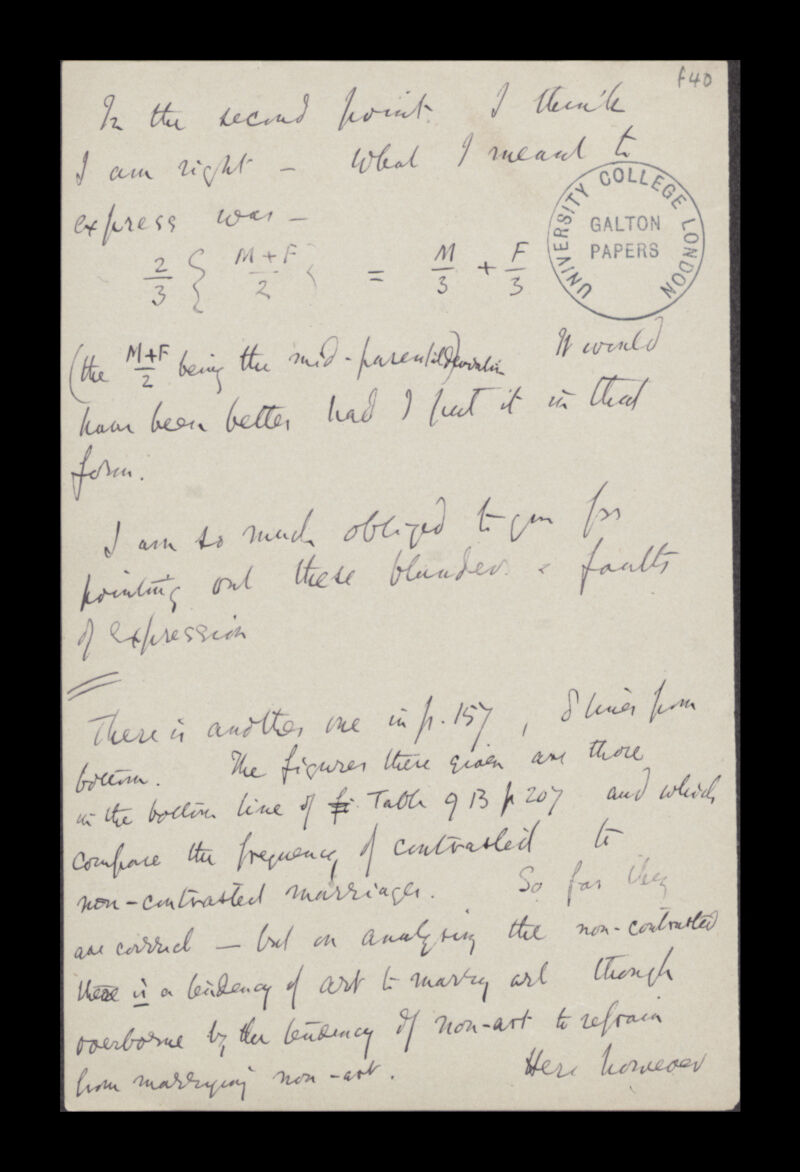 f40
In the second point I think
I am right – What I meant to
express was –
2/3 { M+F/2 } = M/3 + F/3
UNIVERSITY COLLEGE LONDON
GALTON
PAPERS
(the M+F/2 being the mid-parental deviation) It would
have been better had I put it in that
form.
I am so much obliged to you for
pointing out these blunders & faults
of expression
There is another one in p. 157, 8 lines from
bottom. The figures there given are those
in the bottom line of Table 9 B p 207 and which
compare the frequency of contrasted to
non-contrasted marriages. So far they
are correct – but on analysing the non-contrasted
there is a tendency of art to marry art though
overborne by the tendency of non-art to refrain
from marrying non-art. Here however